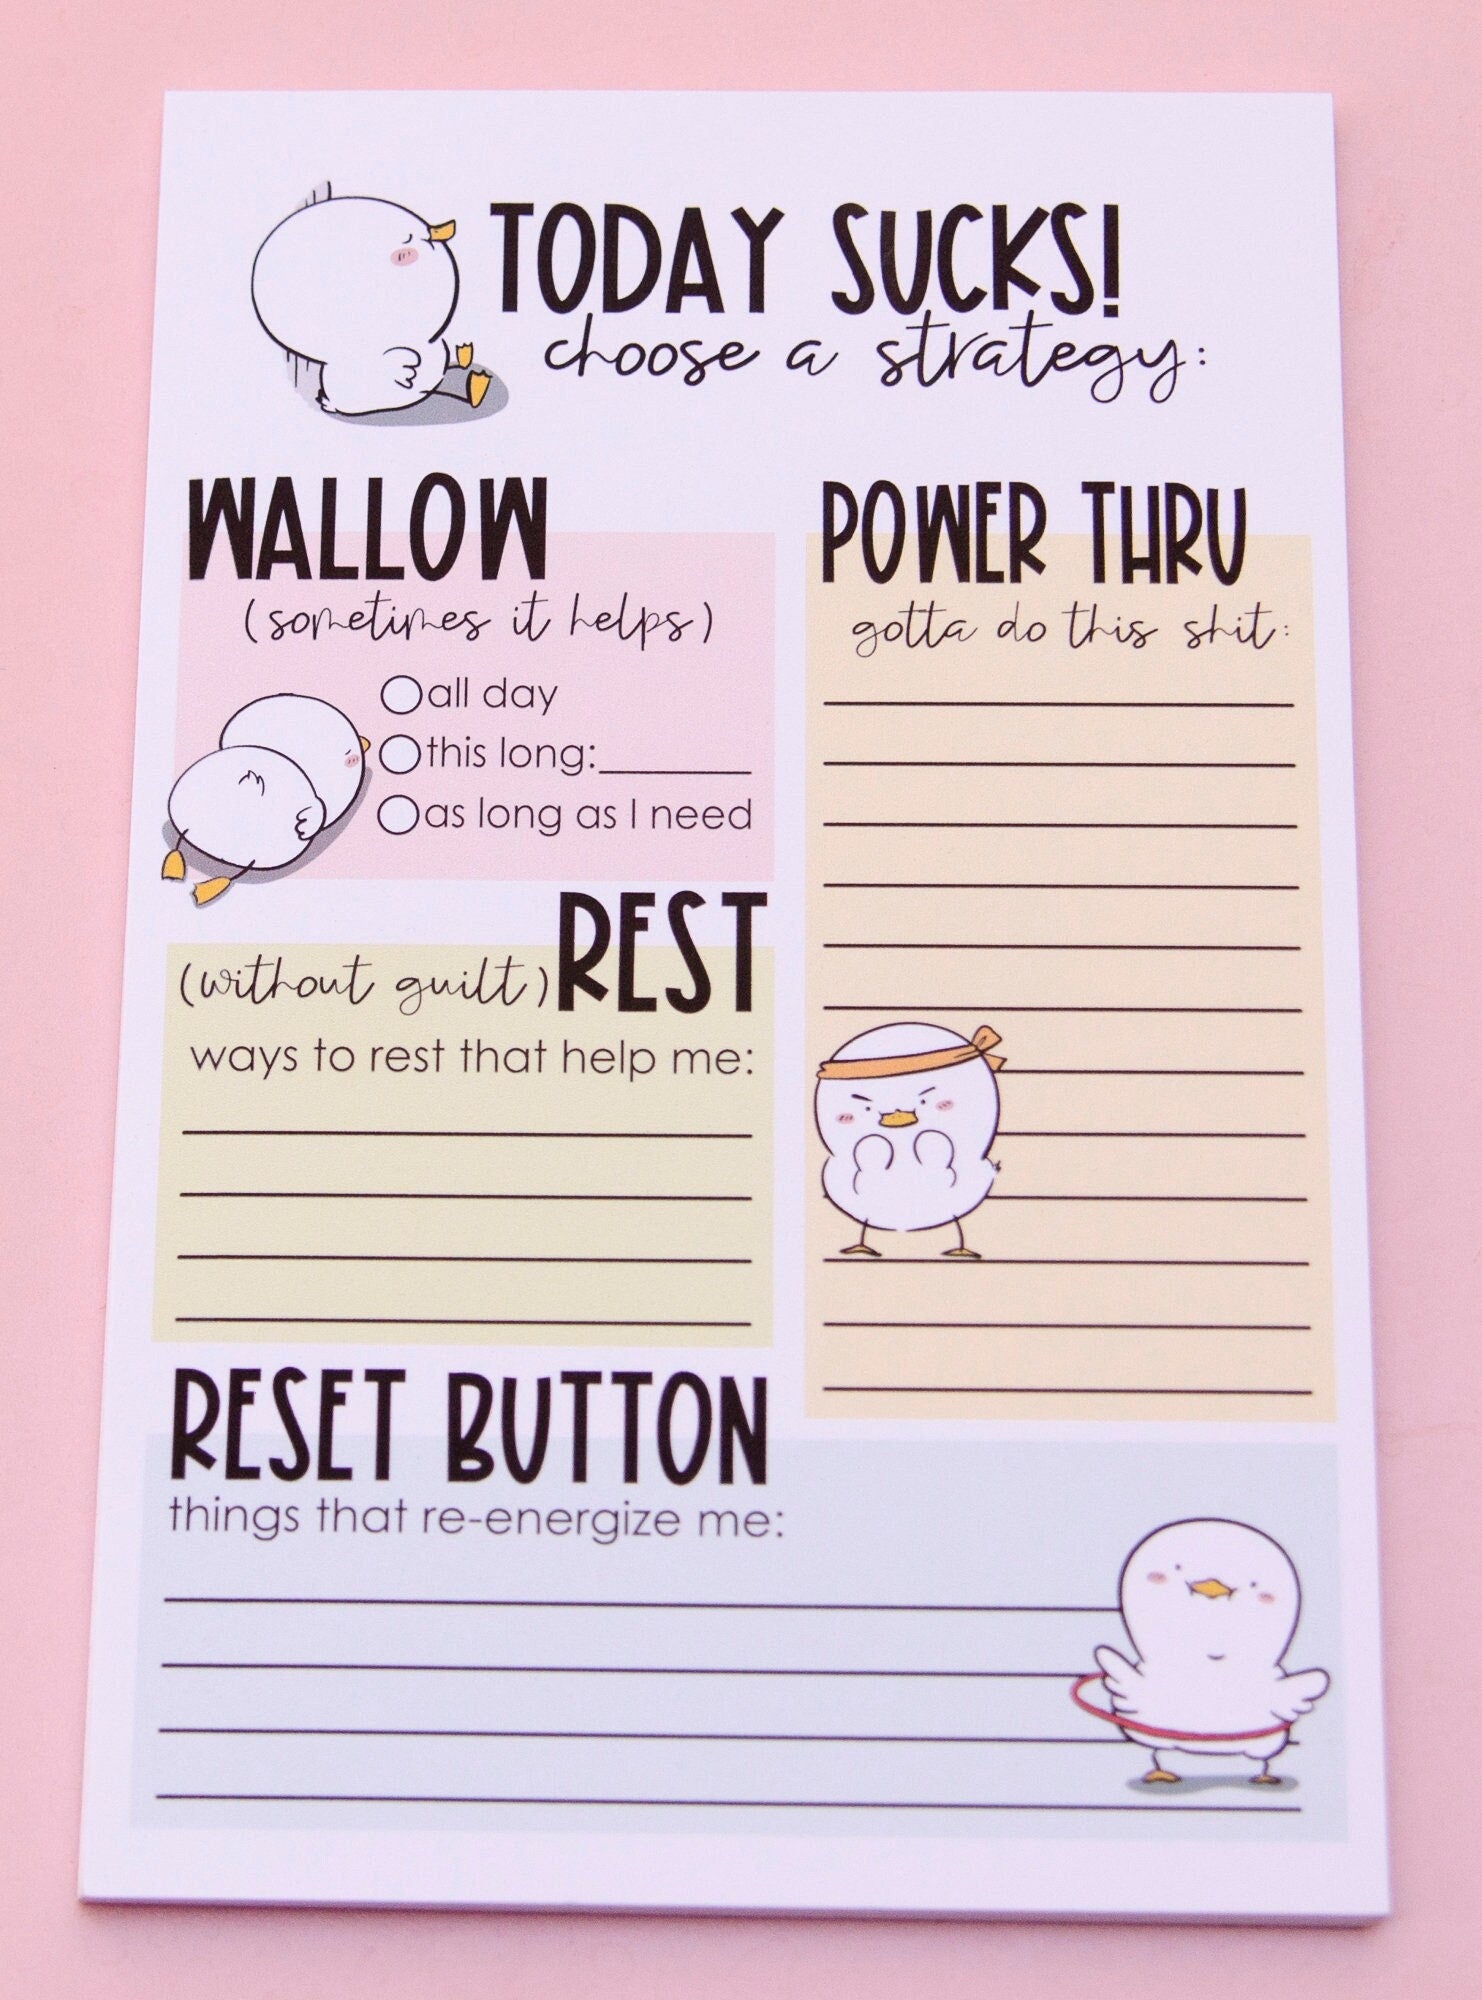 TODAY SUCKS!
choose a strategy:
WALLOW
(sometimes it helps)
all day
this long:______
as long as I need
(without guilt) REST
ways to rest that help me:
POWER THRU
gotta do this shit:
RESET BUTTON
things that re-energize me: